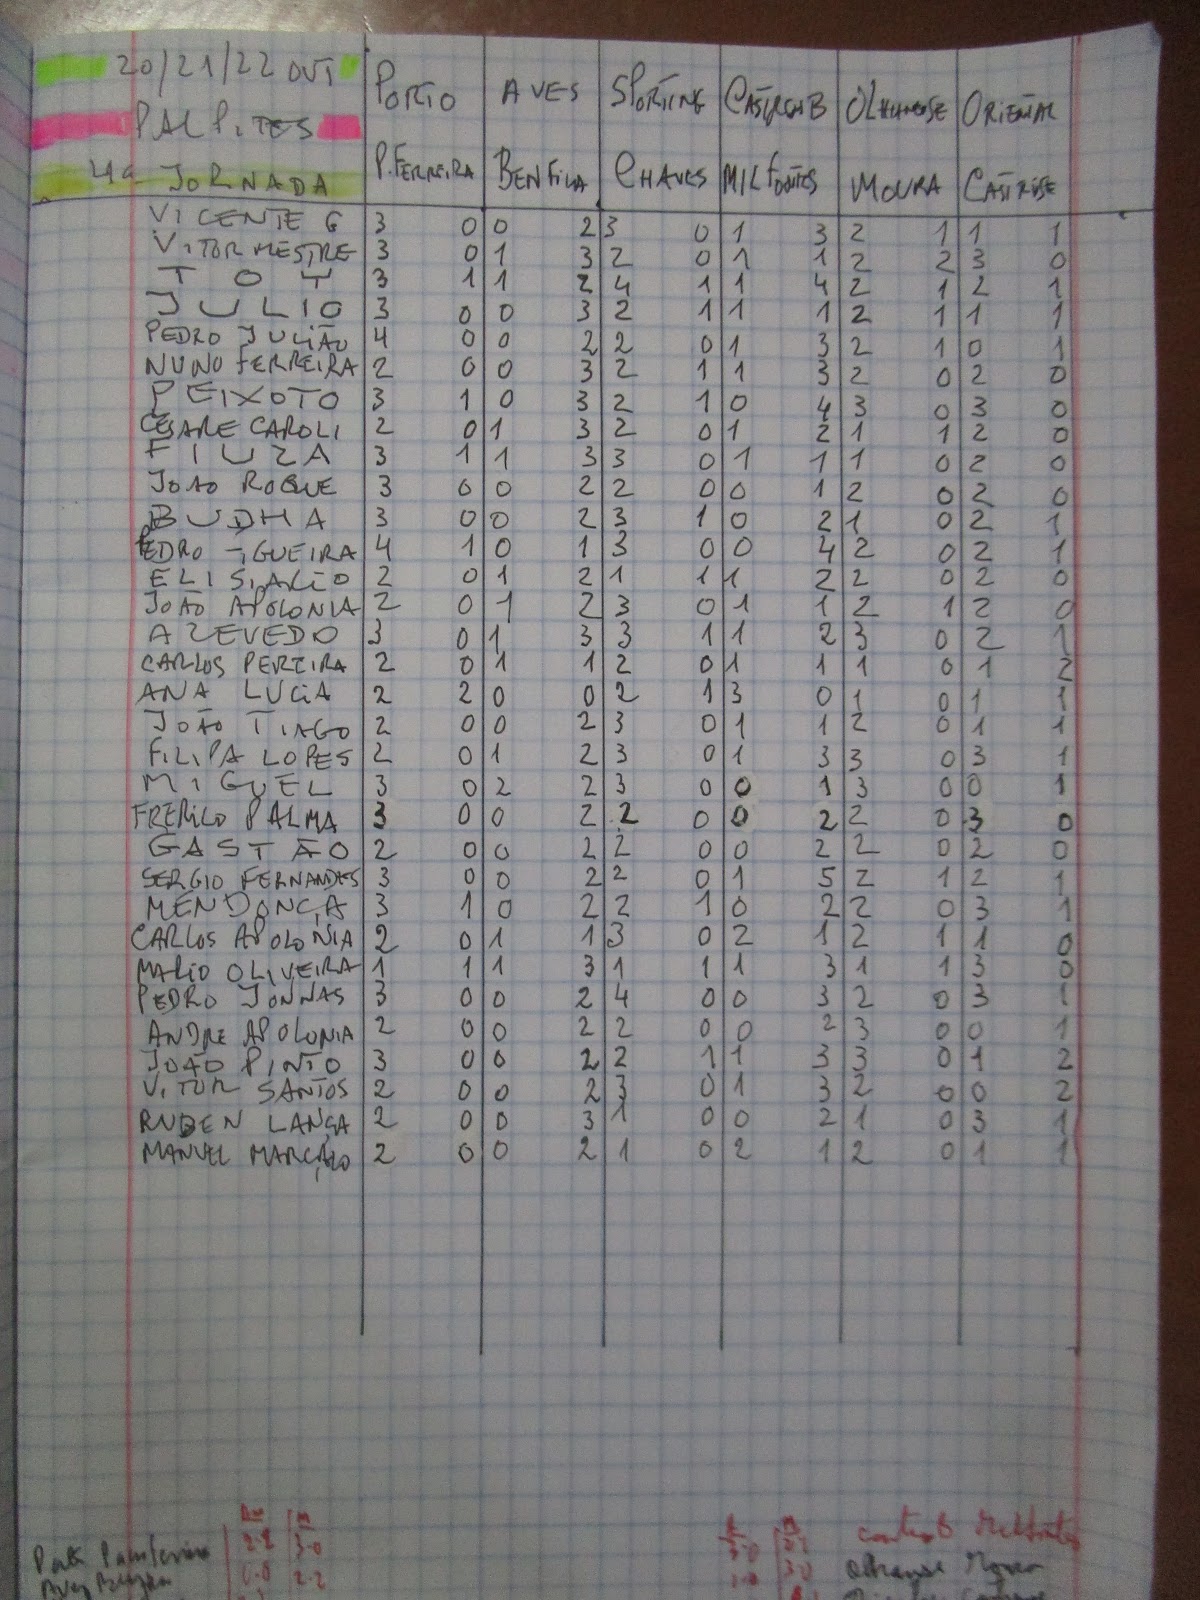 20/21/22 OUT PORTO AVES SPORTING CASTRENSB OLHANENSE ORIENTAL
PALPITES
4ª JORNADA P.FERREIRA BENFICA CHAVES MILFONTES MOURA CASTRENSE
VICENTE G 3 0 0 2 3 0 1 3 2 1 1 1
VITOR MESTRE 3 0 1 3 2 0 1 1 2 2 3 0
TOY 3 1 1 2 4 1 1 4 2 1 2 1
JULIO 3 0 0 3 2 1 1 1 2 1 1 1
PEDRO JULIÃO 4 0 0 2 2 0 1 3 2 1 0 1
NUNO FERREIRA 2 0 0 3 2 1 1 3 2 0 2 0
PEIXOTO 3 1 0 3 2 1 0 4 3 0 3 0
CESARE CAROLI 2 0 1 3 2 0 1 2 1 1 2 0
FIUZA 3 1 1 3 3 0 1 1 1 0 2 0
JOAO ROQUE 3 0 0 2 2 0 0 1 2 0 2 0
BUDHA 3 0 0 2 3 1 0 2 1 0 2 1
PEDRO FIGUEIRA 4 1 0 1 3 0 0 4 2 0 2 1
ELISIARIO 2 0 1 2 1 1 1 2 2 0 2 0
JOÃO APOLONIA 2 0 1 2 3 0 1 1 2 1 2 0
AZEVEDO 3 0 1 3 3 1 1 2 3 0 2 1
CARLOS PEREIRA 2 0 1 1 2 0 1 1 1 0 1 2
ANA LUCIA 2 2 0 0 2 1 3 0 1 0 1 1
JOÃO TIAGO 2 0 0 2 3 0 1 1 2 0 1 1
FILIPA LOPES 2 0 1 2 3 0 1 3 3 0 3 1
MIGUEL 3 0 2 2 3 0 0 1 3 0 0 1
FRERICO PALMA 3 0 0 2 2 0 0 2 2 0 3 0
GASTÃO 2 0 0 2 2 0 0 2 2 0 2 0
SERGIO FERNANDES 3 0 0 2 2 0 1 5 2 1 2 1
MENDONÇA 3 1 0 2 2 1 0 2 2 0 3 1
CARLOS APOLONIA 2 0 1 1 3 0 2 1 2 1 1 0
MARIO OLIVEIRA 1 1 1 3 1 1 1 3 1 1 3 0
PEDRO JONNAS 3 0 0 2 4 0 0 3 2 0 3 1
ANDRE APOLONIA 2 0 0 2 2 0 0 2 3 0 0 1
JOÃO PINTO 3 0 0 2 2 1 1 3 3 0 1 2
VITOR SANTOS 2 0 0 2 3 0 1 3 2 0 0 2
RUBEN LANÇA 2 0 0 3 1 0 0 2 1 0 3 1
MANUEL MARÇALO 2 0 0 2 1 0 2 1 2 0 1 1
3-0
0-0 2-2 3-0